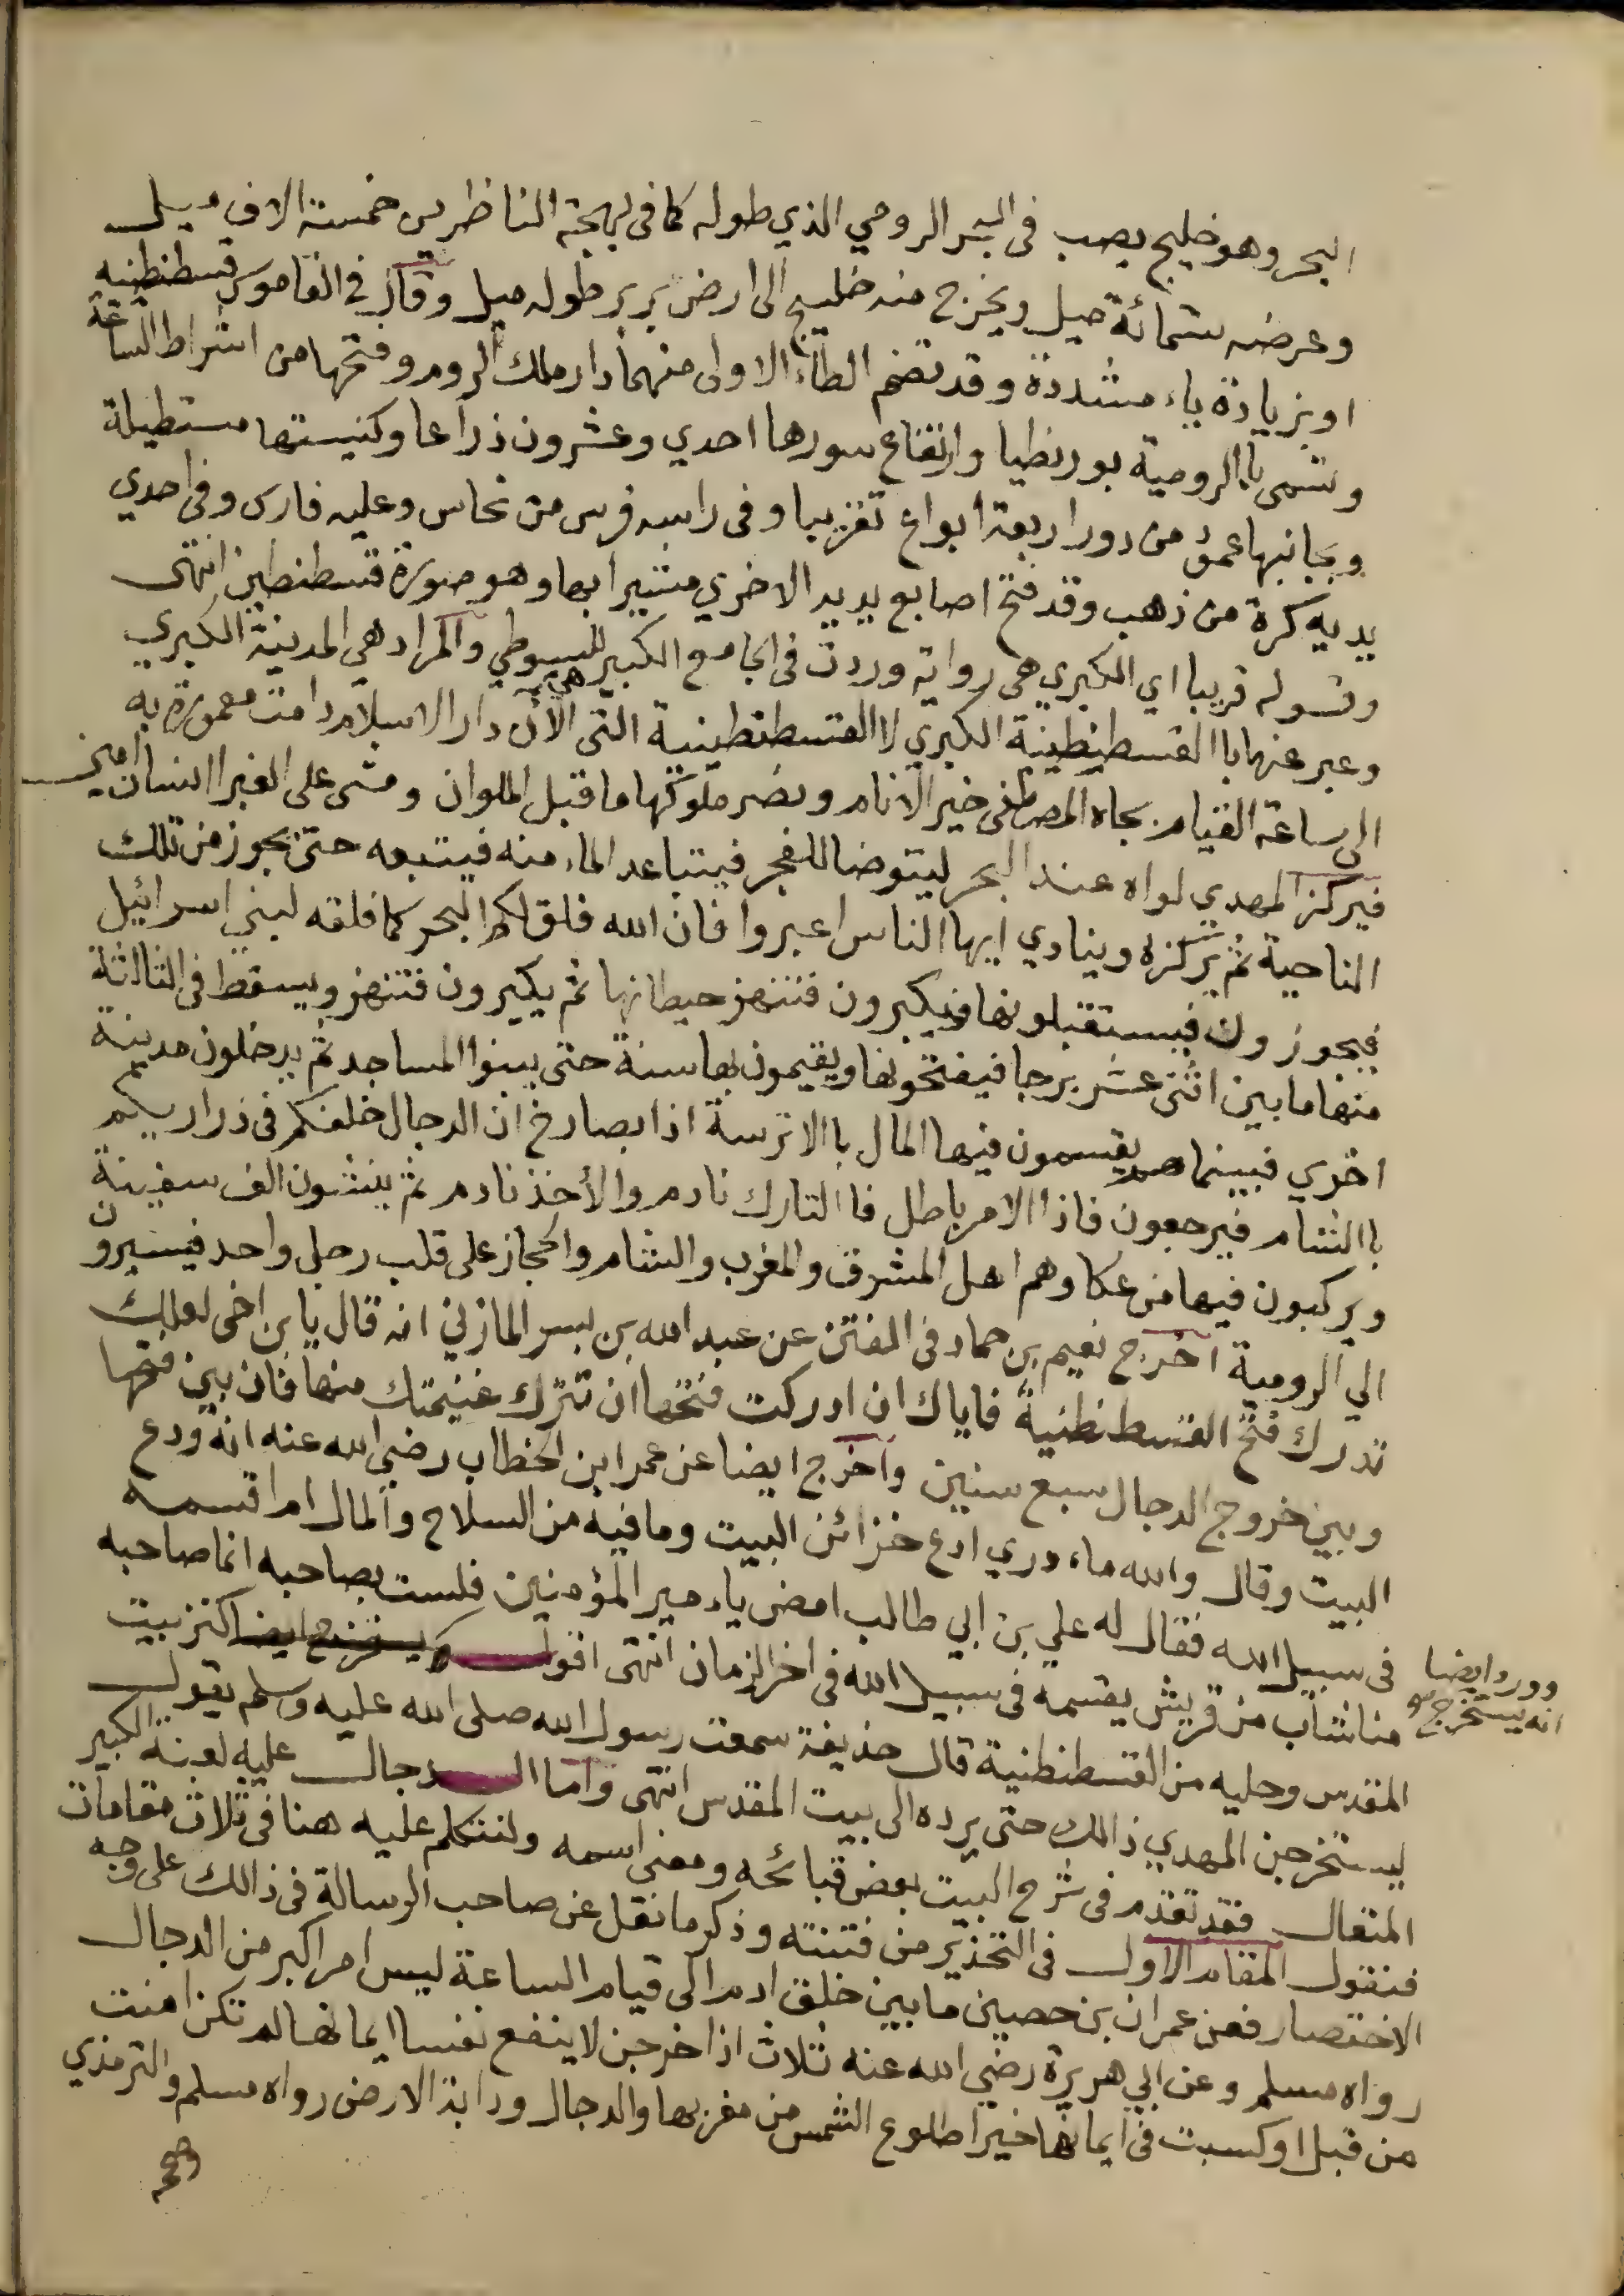 البحر وهو خليج يصب في البحر الرومي الذي طوله كما في بهجة الناظرين خمسة الاف ميل
وعرضه ستمائة ميل ويخرج منه خليج الى ارض بربر طوله ميل وقال في القاموس قسطنطينيه
او بزيادة ياء مشددة وقد تضم الطاء الاولى منهما دار ملك الروم وفتحها من اشراط الساعة
وتسمى باالرومية بورنطيا وارتفاع سورها احدي وعشرون ذراعا وكنيستها مستطيلة
وبجانبها عمود من دور اربعة ابواع تقريبا وفي راسه فرس من نحاس وعليه فارس وفي احدي
يديه كرة من ذهب وقد فتح اصابع يديد الاخري مشيرا بها وهو صورة قسطنطين انتهى
وقوله قريبا اي الكبري هي رواية وردت في الجامع الكبير للسيوطي والمراد هي المدينة الكبري
وعبر عنها باالقسطنطينة الكبري لا القسطنطينية التي هي الآن دار الاسلام دامت معمورة به
الى ساعة القيام بجاه المصطفى خير الانام ونصر ملوكها ما قبل الملوان ومشى على الغبرا انسان امين
فيركز المهدي لواه عند البحر ليتوضا للفجر فيتباعد الماء منه فيتبعه حتى يجوز من تلك
الناحية ثم يركزه وينادي ايها الناس اعبروا فان الله فلق لكم البحر كما فلقه لبني اسرائيل
فيجوزون فيستقبلونها فيكبرون فتنهز حيطانها ثم يكبرون فتنهز ويسقط في الثالثة
منها ما بين اثنى عشر برجا فيفتحونها ويقيمون بها سنة حتى يبنوا المساجد ثم يدخلون مدينة
اخري فبينما هم يقسمون فيها المال باالاترسة اذا بصارخ ان الدجال خلفكم في ذراريكم
باالشام فيرجعون فاذا الامر باطل فا التارك نادم والأخذ نادم ثم ينشون الف سفينة
ويركبون فيها من عكا وهم اهل المشرق والمغرب والشام والحجاز على قلب رجل واحد فيسيرون
الي الرومية اخرج نعيم بن حماد في الفتن عن عبد الله بن بسر المازني انه قال يا بن اخى لعلك
تدرك فتح القسطنطنية فاياك ان ادركت فتحها ان تترك غنيمتك منها فان بين فتحها
وبين خروج الدجال سبع سنين واخرج ايضا عن عمر ابن الخطاب رضي الله عنه انه ودع
البيت وقال والله ماء دري ادع خزائن البيت وما فيه من السلاح والمال ام اقسمه
في سبيل الله فقال له علي بن ابي طالب امض ياء مير المؤمنين فلست بصاحبه انما صاحبه
منا شاب من قريش يقسمه في سبيل الله في اخر الزمان انتهى اقول ويستخرج ايضا كنز بيت
وورد ايضا
انه يستخرج
المقدس وحليه من القسطنطنية قال حذيفة سمعت رسول الله صلى الله عليه وسلم يقول
ليستخرجن المهدي ذالك حتى يرده الى بيت المقدس انتهى واما الدجال عليه لعنة الكبير
المتعال فقد تقدم في شرح البيت بعض قبائحه ومعنى اسمه ولنتكلم عليه هنا في ثلاث مقامات
فنقول المقام الاول في التحذير من فتنته وذكر ما نقل عن صاحب الرسالة في ذالك على وجه
الاختصار فعن عمران بن حصين ما بين خلق ادم الى قيام الساعة ليس امر اكبر من الدجال
رواه مسلم وعن ابي هريرة رضي الله عنه ثلاث اذا خرجن لا ينفع نفسا ايمانها لم تكن امنت
من قبل او كسبت في ايمانها خيرا طلوع الشمس من مغربها والدجال ودابة الارض رواه مسلم والترمذي